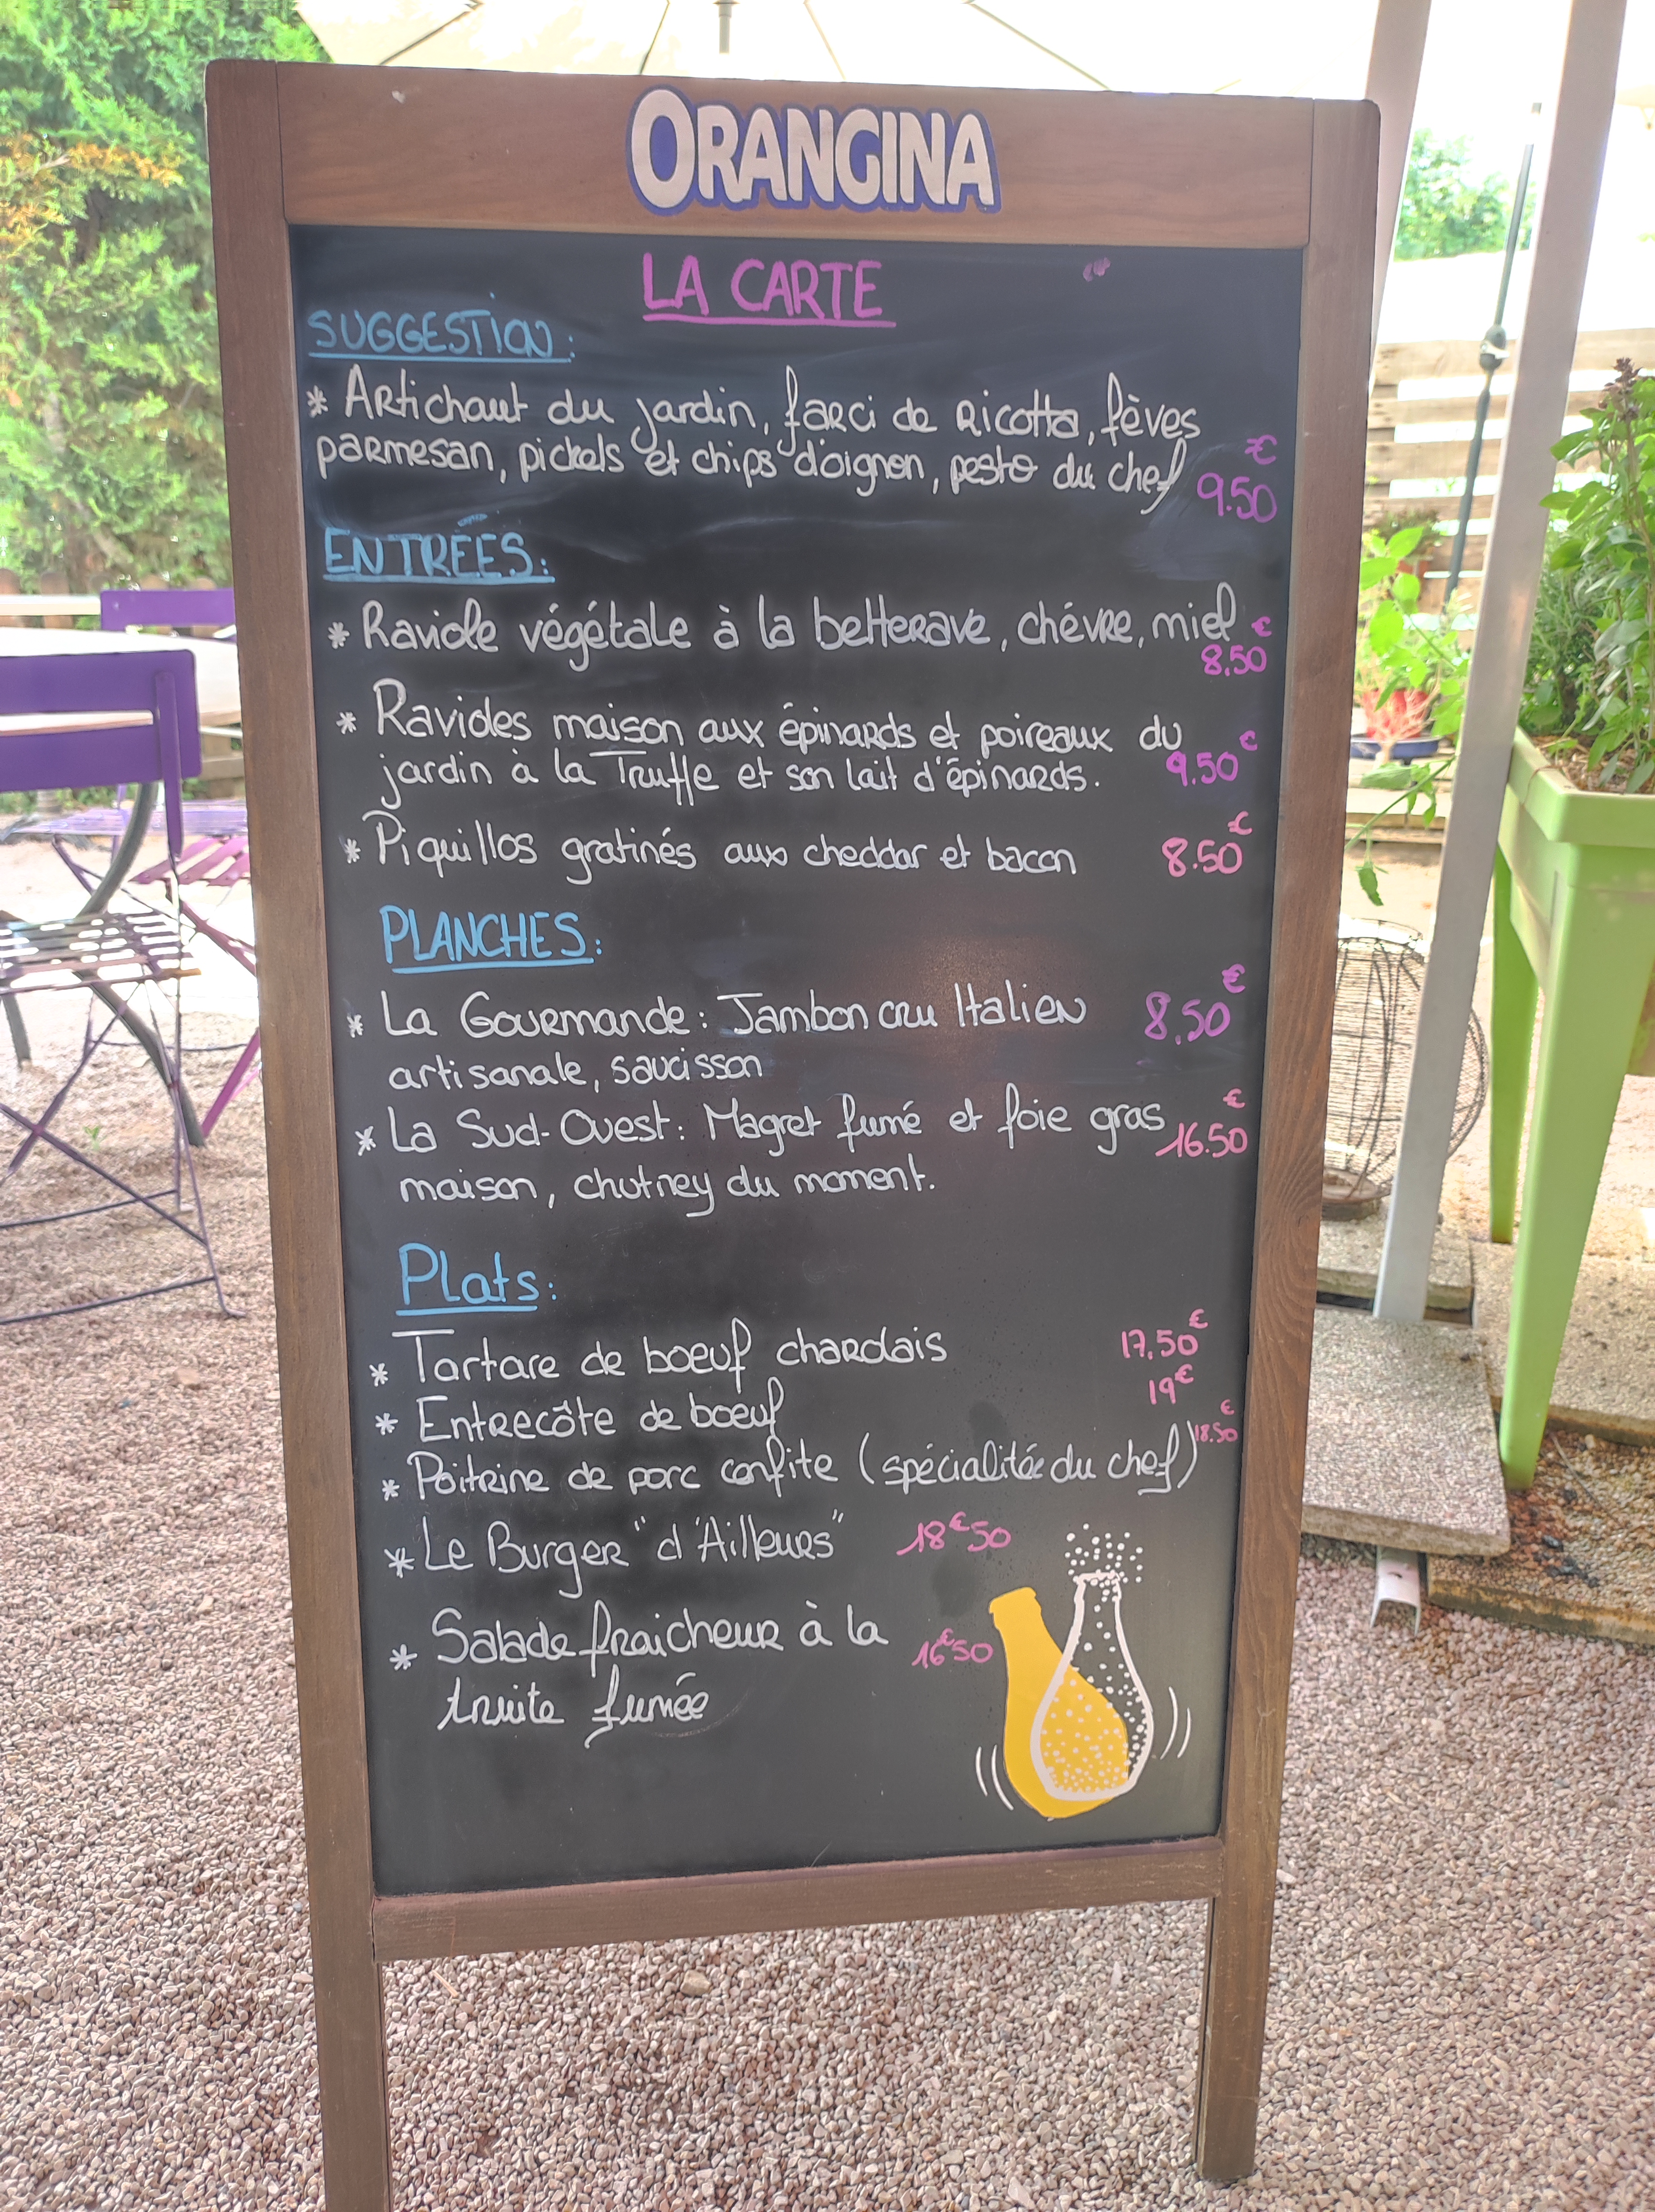 ORANGINA
LA CARTE
SUGGESTION:
* Artichaut du jardin, farci de Ricotta, fèves
parmesan, pickels et chips d'oignon, pesto du chef 9.50€
ENTRÉES:
* Raviole végétale à la betterave, chévre, miel 8,50€
* Ravioles maison aux épinards et poireaux du
jardin à la Truffe et son lait d'épinards. 9.50€
* Piquillos gratinés aux cheddar et bacon 8.50€
PLANCHES:
* La Gourmande: Jambon cru Italien 8,50€
artisanale, saucisson
* La Sud-Ouest: Magret fumé et foie gras 16.50€
maison, chutney du moment.
Plats:
* Tartare de boeuf charolais 17,50€
* Entrecôte de boeuf 19€
* Poitrine de porc confite (spécialitée du chef) 18.50€
* Le Burger "d'Ailleurs" 18€50
* Salade fraicheur à la 16€50
truite fumée